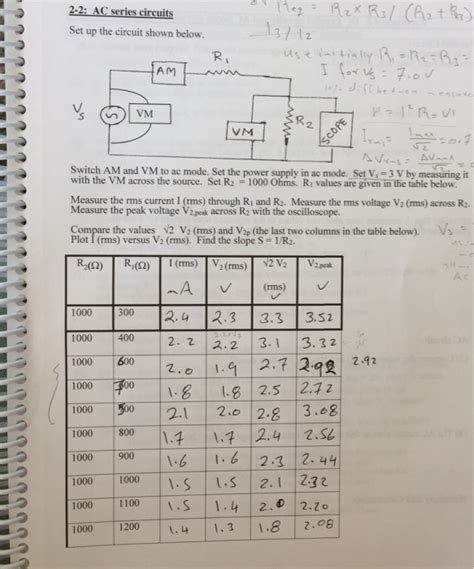 Req = R2 x R3 / (R2 + R3)
2-2: AC series circuits
13/12
Set up the circuit shown below.
use initially R1 = R2 = R3 =
I for Vs = 7.0 V
R1
AM
10% diff between measure
Vs
VM
VM
R2
SCOPE
Switch AM and VM to ac mode. Set the power supply in ac mode. Set Vs = 3 V by measuring it
with the VM across the source. Set R2 = 1000 Ohms. R1 values are given in the table below.
Measure the rms current I (rms) through R1 and R2. Measure the rms voltage V2 (rms) across R2.
Measure the peak voltage V2,peak across R2 with the oscilloscope.
Compare the values √2 V2 (rms) and V2p (the last two columns in the table below).
Plot I (rms) versus V2 (rms). Find the slope S = 1/R2.
R2(Ω) R1(Ω) I (rms) V2 (rms) √2 V2 (rms) V2,peak
mA V V V
1000 300 2.4 2.3 3.3 3.52
1000 400 2.2 2.2 3.1 3.32
1000 600 2.0 1.9 2.7 2.92 2.92
1000 700 1.8 1.8 2.5 2.72
1000 500 2.1 2.0 2.8 3.08
1000 800 1.7 1.7 2.4 2.56
1000 900 1.6 1.6 2.3 2.44
1000 1000 1.5 1.5 2.1 2.32
1000 1100 1.5 1.4 2.0 2.20
1000 1200 1.4 1.3 1.8 2.08